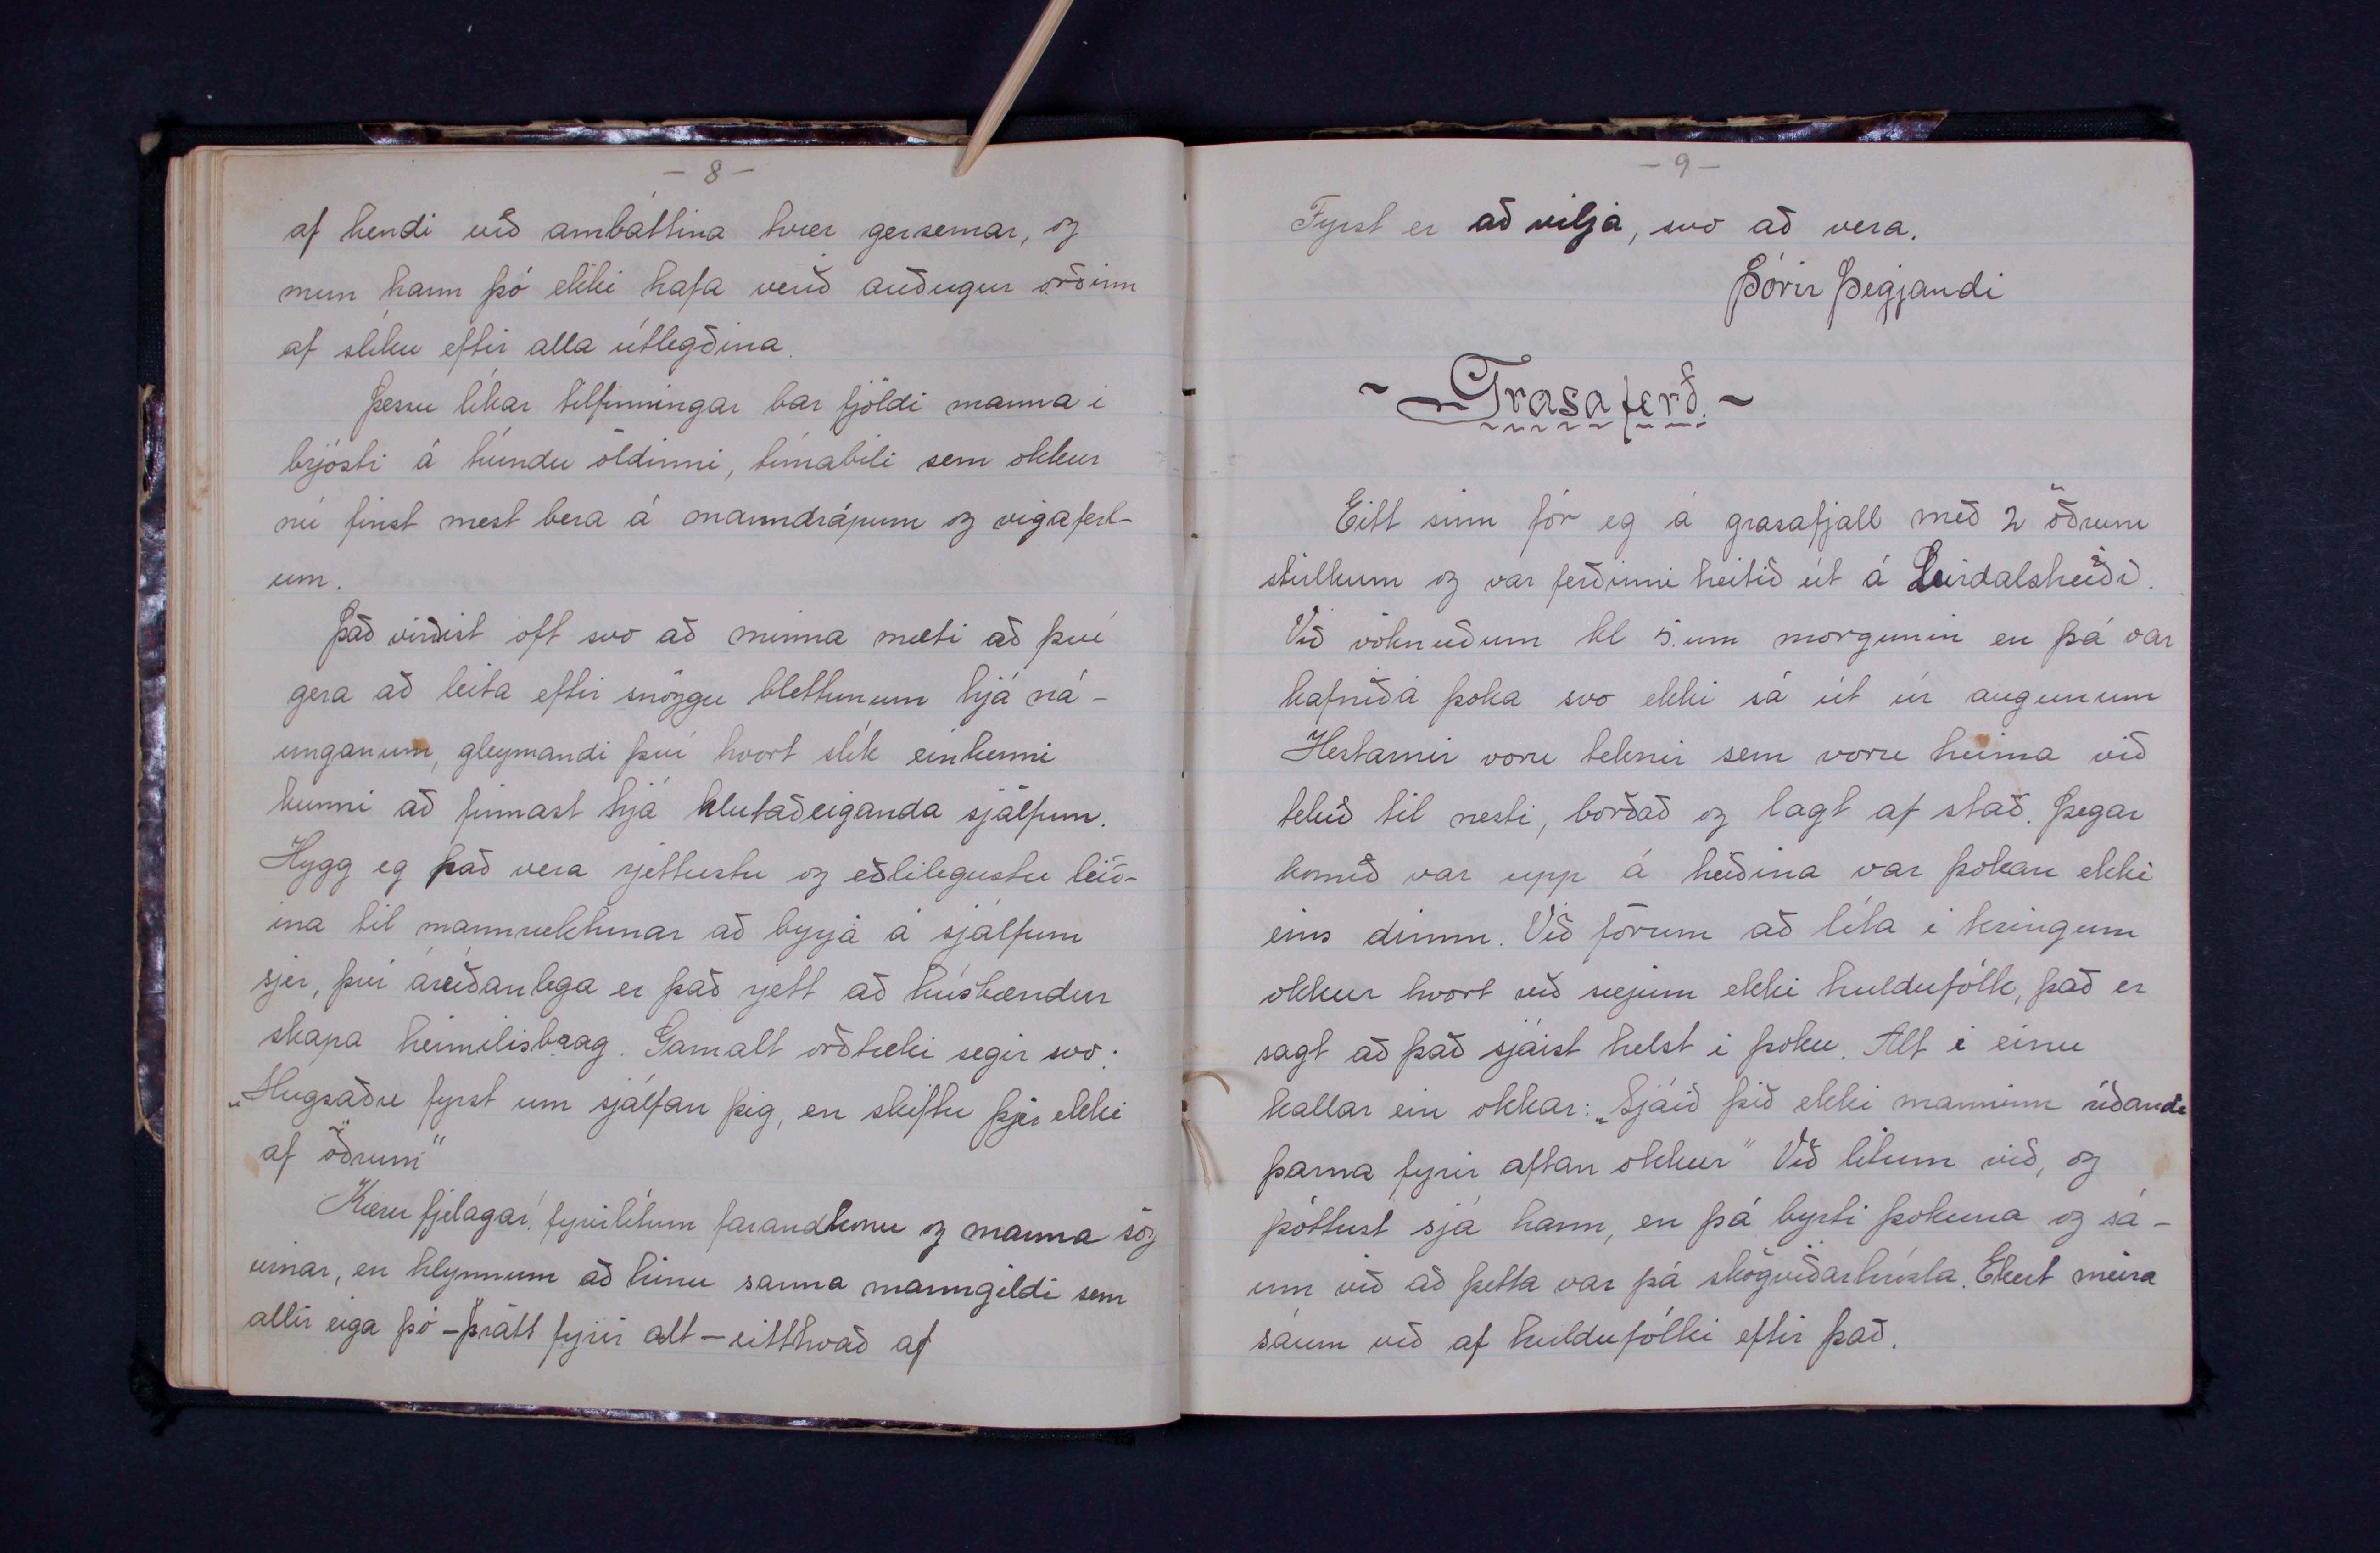 - 8 -
af hendi við ambáttina tvær gersemar, og
mun hann þó ekki hafa verið auðugur orðinn
af slíku eftir alla útlegðina.
Þessu líkar tilfinningar bar fjöldi manna í
brjósti á tíundu öldinni, tímabili sem okkur
nú finst mest bera á manndrápum og vígaferl-
um.
Það virðist oft svo að minna mæti að því
gera að leita eftir snöggu blettunum hjá ná-
unganum, gleymandi því hvort slík einkenni
kunni að finnast hjá hlutaðeiganda sjálfum.
Hygg eg það vera rjettustu og eðlilegustu leið-
ina til mannræktunar að byrja á sjálfum
sjer, því áreiðanlega er það rjett að húsbændur
skapa heimilisbrag. Gamalt orðtæki segir svo:
„Hugsaðu fyrst um sjálfan þig, en skiftu þjer ekki
af öðrum"
Kæru fjelagar! fyrirlítum farandkonu og manna sög
urnar, en hlynnum að hinu sanna manngildi sem
allir eiga þó - þrátt fyrir alt - eitthvað af
- 9 -
Fyrst er að vilja, svo að vera.
Þórir Þegjandi
~ Grasaferð. ~
Eitt sinn fór eg á grasafjall með 2 öðrum
stúlkum og var ferðinni heitið út á Leirdalsheiði.
Við vöknuðum kl 5. um morgunin en þá var
kafniða þoka svo ekki sá út úr augunum
Hestarnir voru teknir sem voru heima við
tekið til nesti, borðað og lagt af stað. Þegar
komið var upp á heiðina var þokan ekki
eins dimm. Við fórum að líta í kringum
okkur hvort við sæjum ekki huldufólk, það er
sagt að það sjáist helst í þoku. Alt í einu
kallar ein okkar: „Sjáið þið ekki manninn ríðandi
þarna fyrir aftan okkur" Við litum við, og
þóttust sjá hann, en þá byrti þokuna og sá-
um við að þetta var þá skógviðarhrísla. Ekert meira
sáum við af huldufólki eftir það.